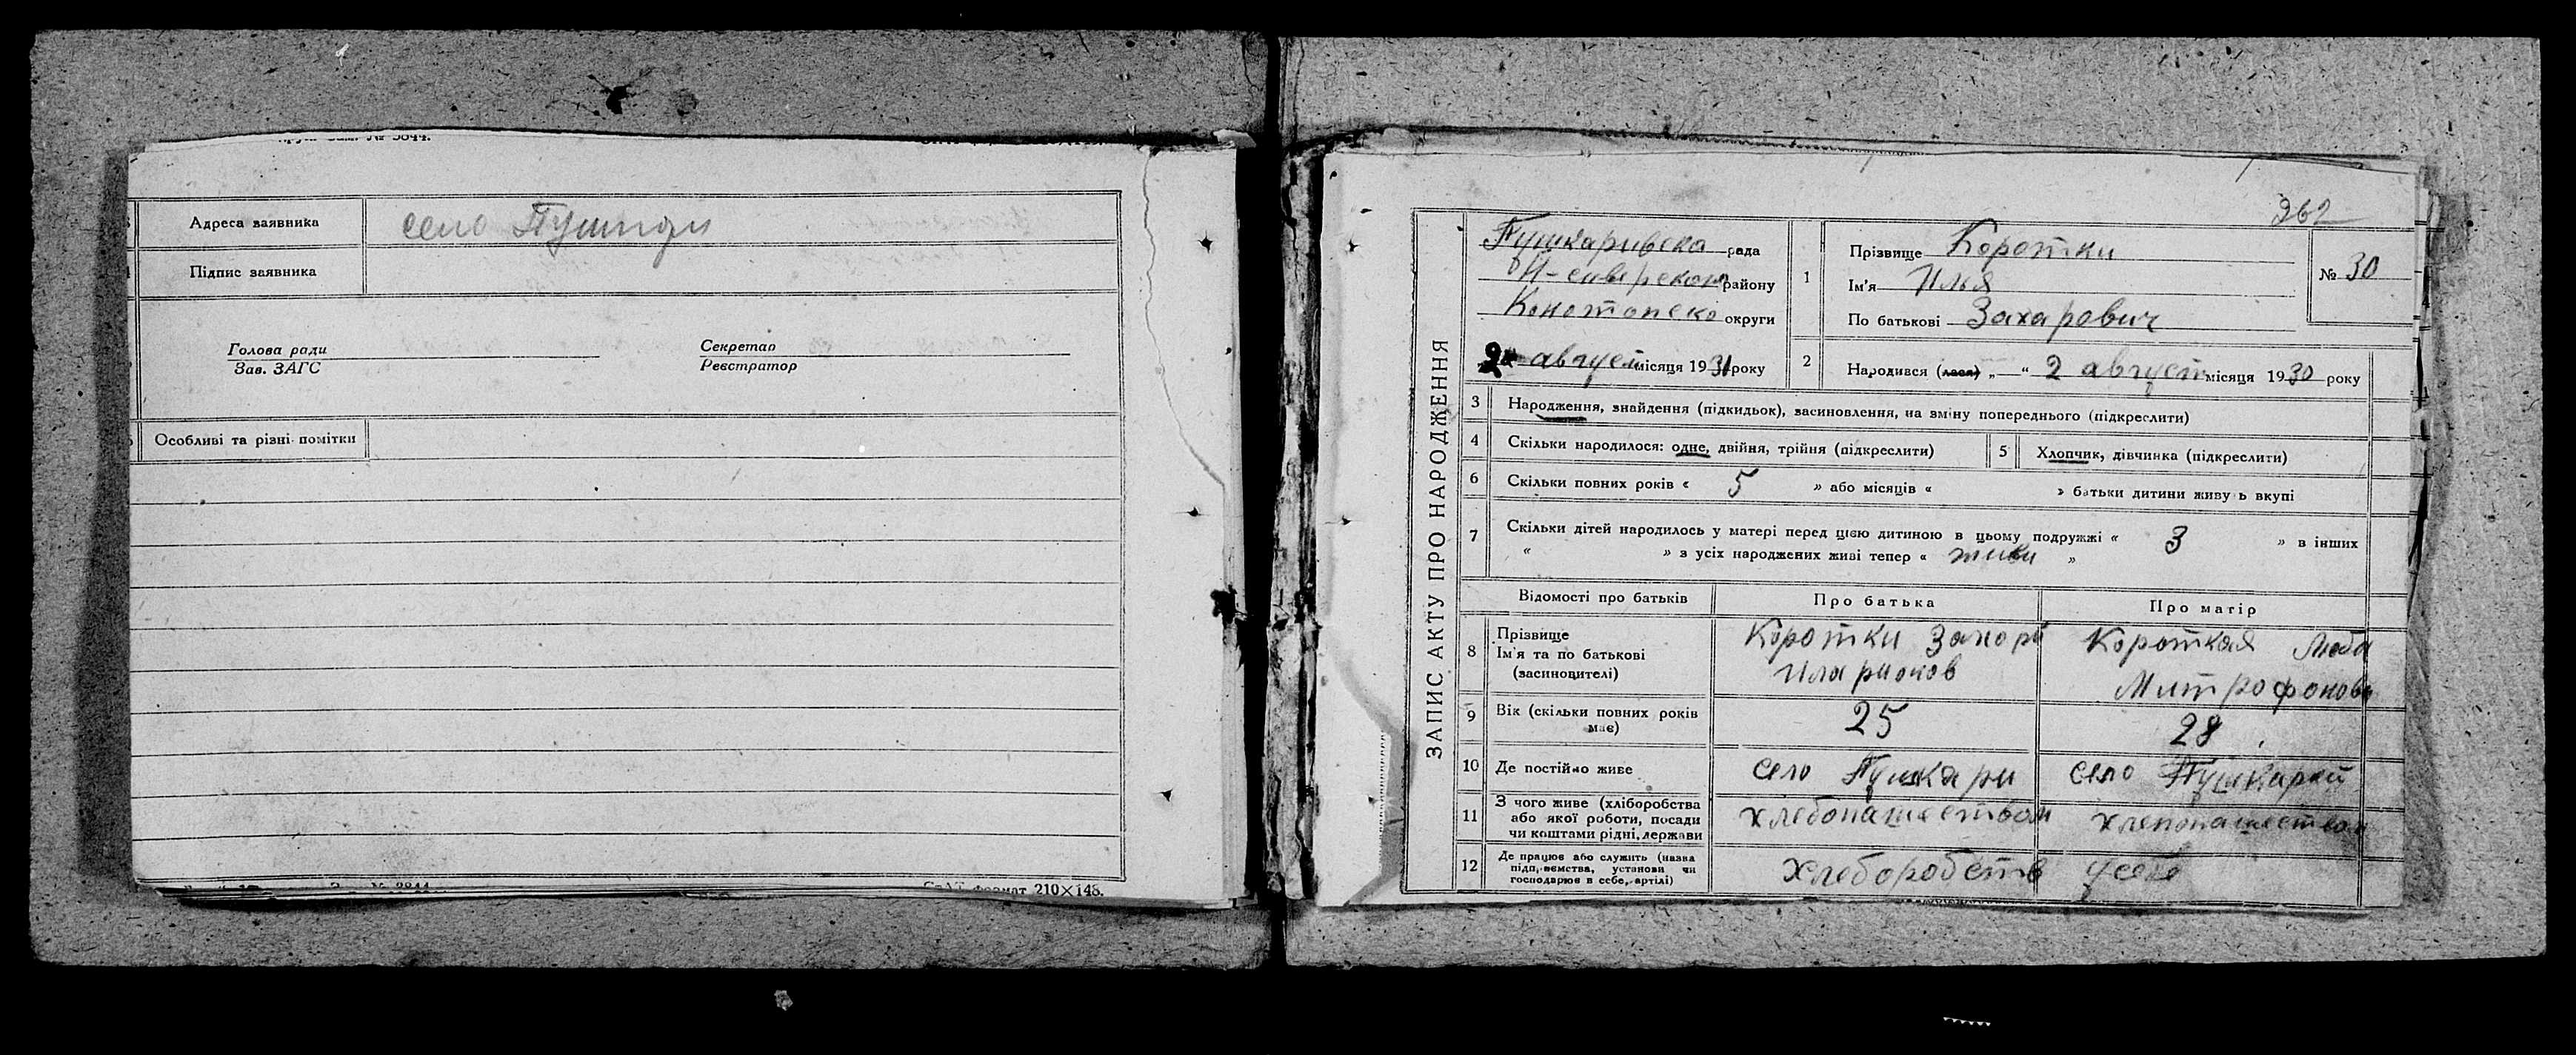 № 3844.
Адреса заявника село Пушкари
Підпис заявника
Голова ради
Зав. ЗАГС
Секретар
Реєстратор
Особливі та різні помітки
№ 3844
формат 210×148.
362
ЗАПИС АКТУ ПРО НАРОДЖЕННЯ
Пушкаривска рада
Н-сиверского району
Конотопско округи
2 август місяця 1931 року
1 Прізвище Коротки
Ім'я Илья
По батькові Захарович
№ 30
2 Народився (лася) „ — “ 2 август місяця 1930 року
3 Народження, знайдення (підкидьок), засиновлення, на зміну попереднього (підкреслити)
4 Скільки народилося: одне, двійня, трійня (підкреслити)
5 Хлопчик, дівчинка (підкреслити)
6 Скільки повних років « 5 » або місяців « » батьки дитини живуть вкупі
7 Скільки дітей народилось у матері перед цією дитиною в цьому подружжі « 3 » в інших
« » з усіх народжених живі тепер « живи »
Відомості про батьків Про батька Про матір
8 Прізвище
Ім'я та по батькові
(засиновителі)
Коротки Захори
Иларионов
Короткая Люба
Митрофонов
9 Вік (скільки повних років
має)
25
28
10 Де постійно живе село Пушкари село Пушкарей
11 З чого живе (хліборобства
або якої роботи, посади
чи коштами рідні, держави
хлебопашеством
хлепопашеством
12 Де працює або служить (назва
підприємства, установи чи
господарює в себе, артілі)
хлеборобств усебе